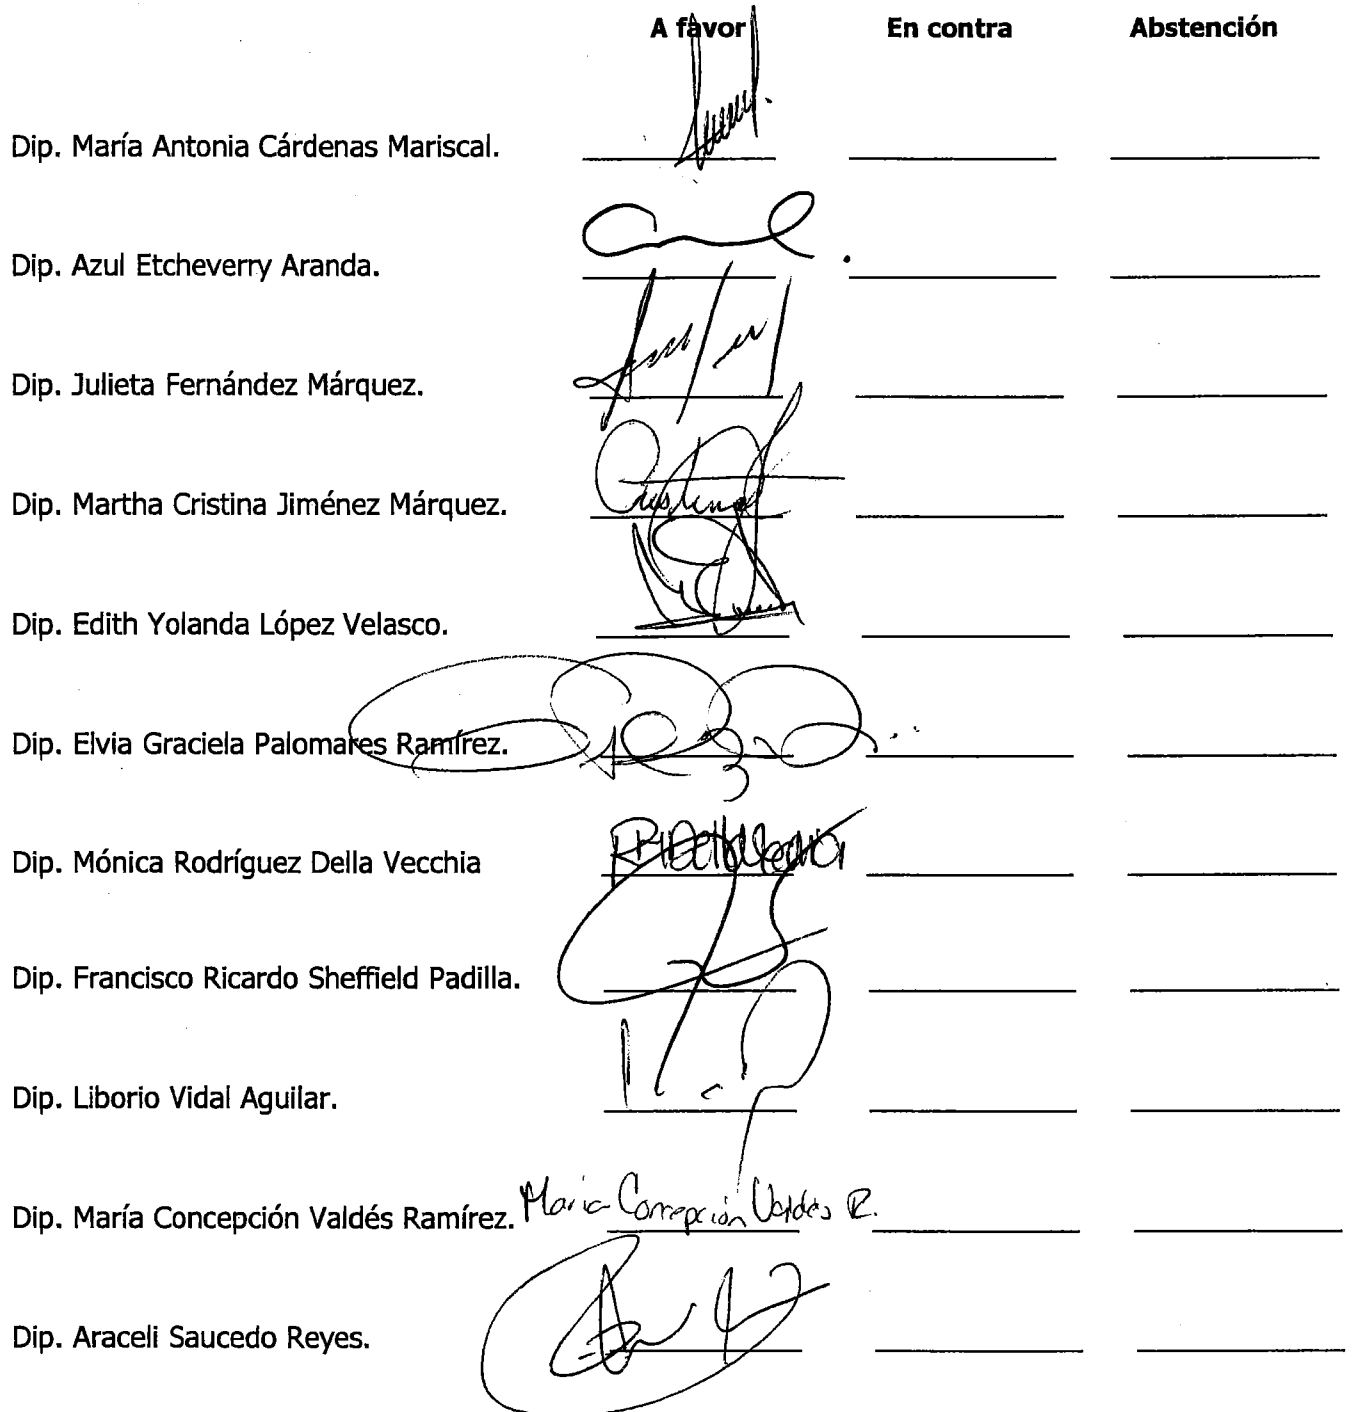 A favor En contra Abstención
Dip. María Antonia Cárdenas Mariscal.
Dip. Azul Etcheverry Aranda.
Dip. Julieta Fernández Márquez.
Dip. Martha Cristina Jiménez Márquez. Cristina
Dip. Edith Yolanda López Velasco.
Dip. Elvia Graciela Palomares Ramírez.
Dip. Mónica Rodríguez Della Vecchia
Dip. Francisco Ricardo Sheffield Padilla.
Dip. Liborio Vidal Aguilar.
Dip. María Concepción Valdés Ramírez. Maria Concepción Valdés R.
Dip. Araceli Saucedo Reyes.